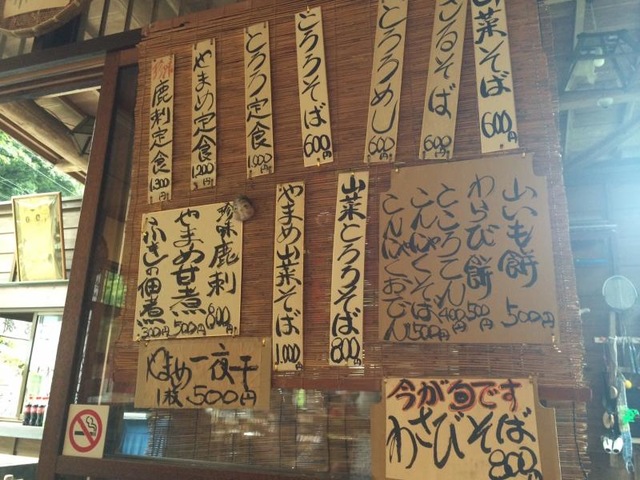 山菜そば 600円
ざるそば 600円
とろろめし 600円
とろろそば 600円
とろろ定食 1,000円
やまめ定食 1,200円
珍味 鹿刺定食 1,300円
山いも餅 500円
わらび餅 500円
ところてん 400円
こんにゃくそば
こんにゃくおでん 500円
山菜とろろそば 800円
やまめ山菜そば 1,000円
珍味 鹿刺 800円
やまめ甘煮 500円
ふきの佃煮 300円
やまめ一夜干
1枚.500円
今が旬です
わさびそば
800円